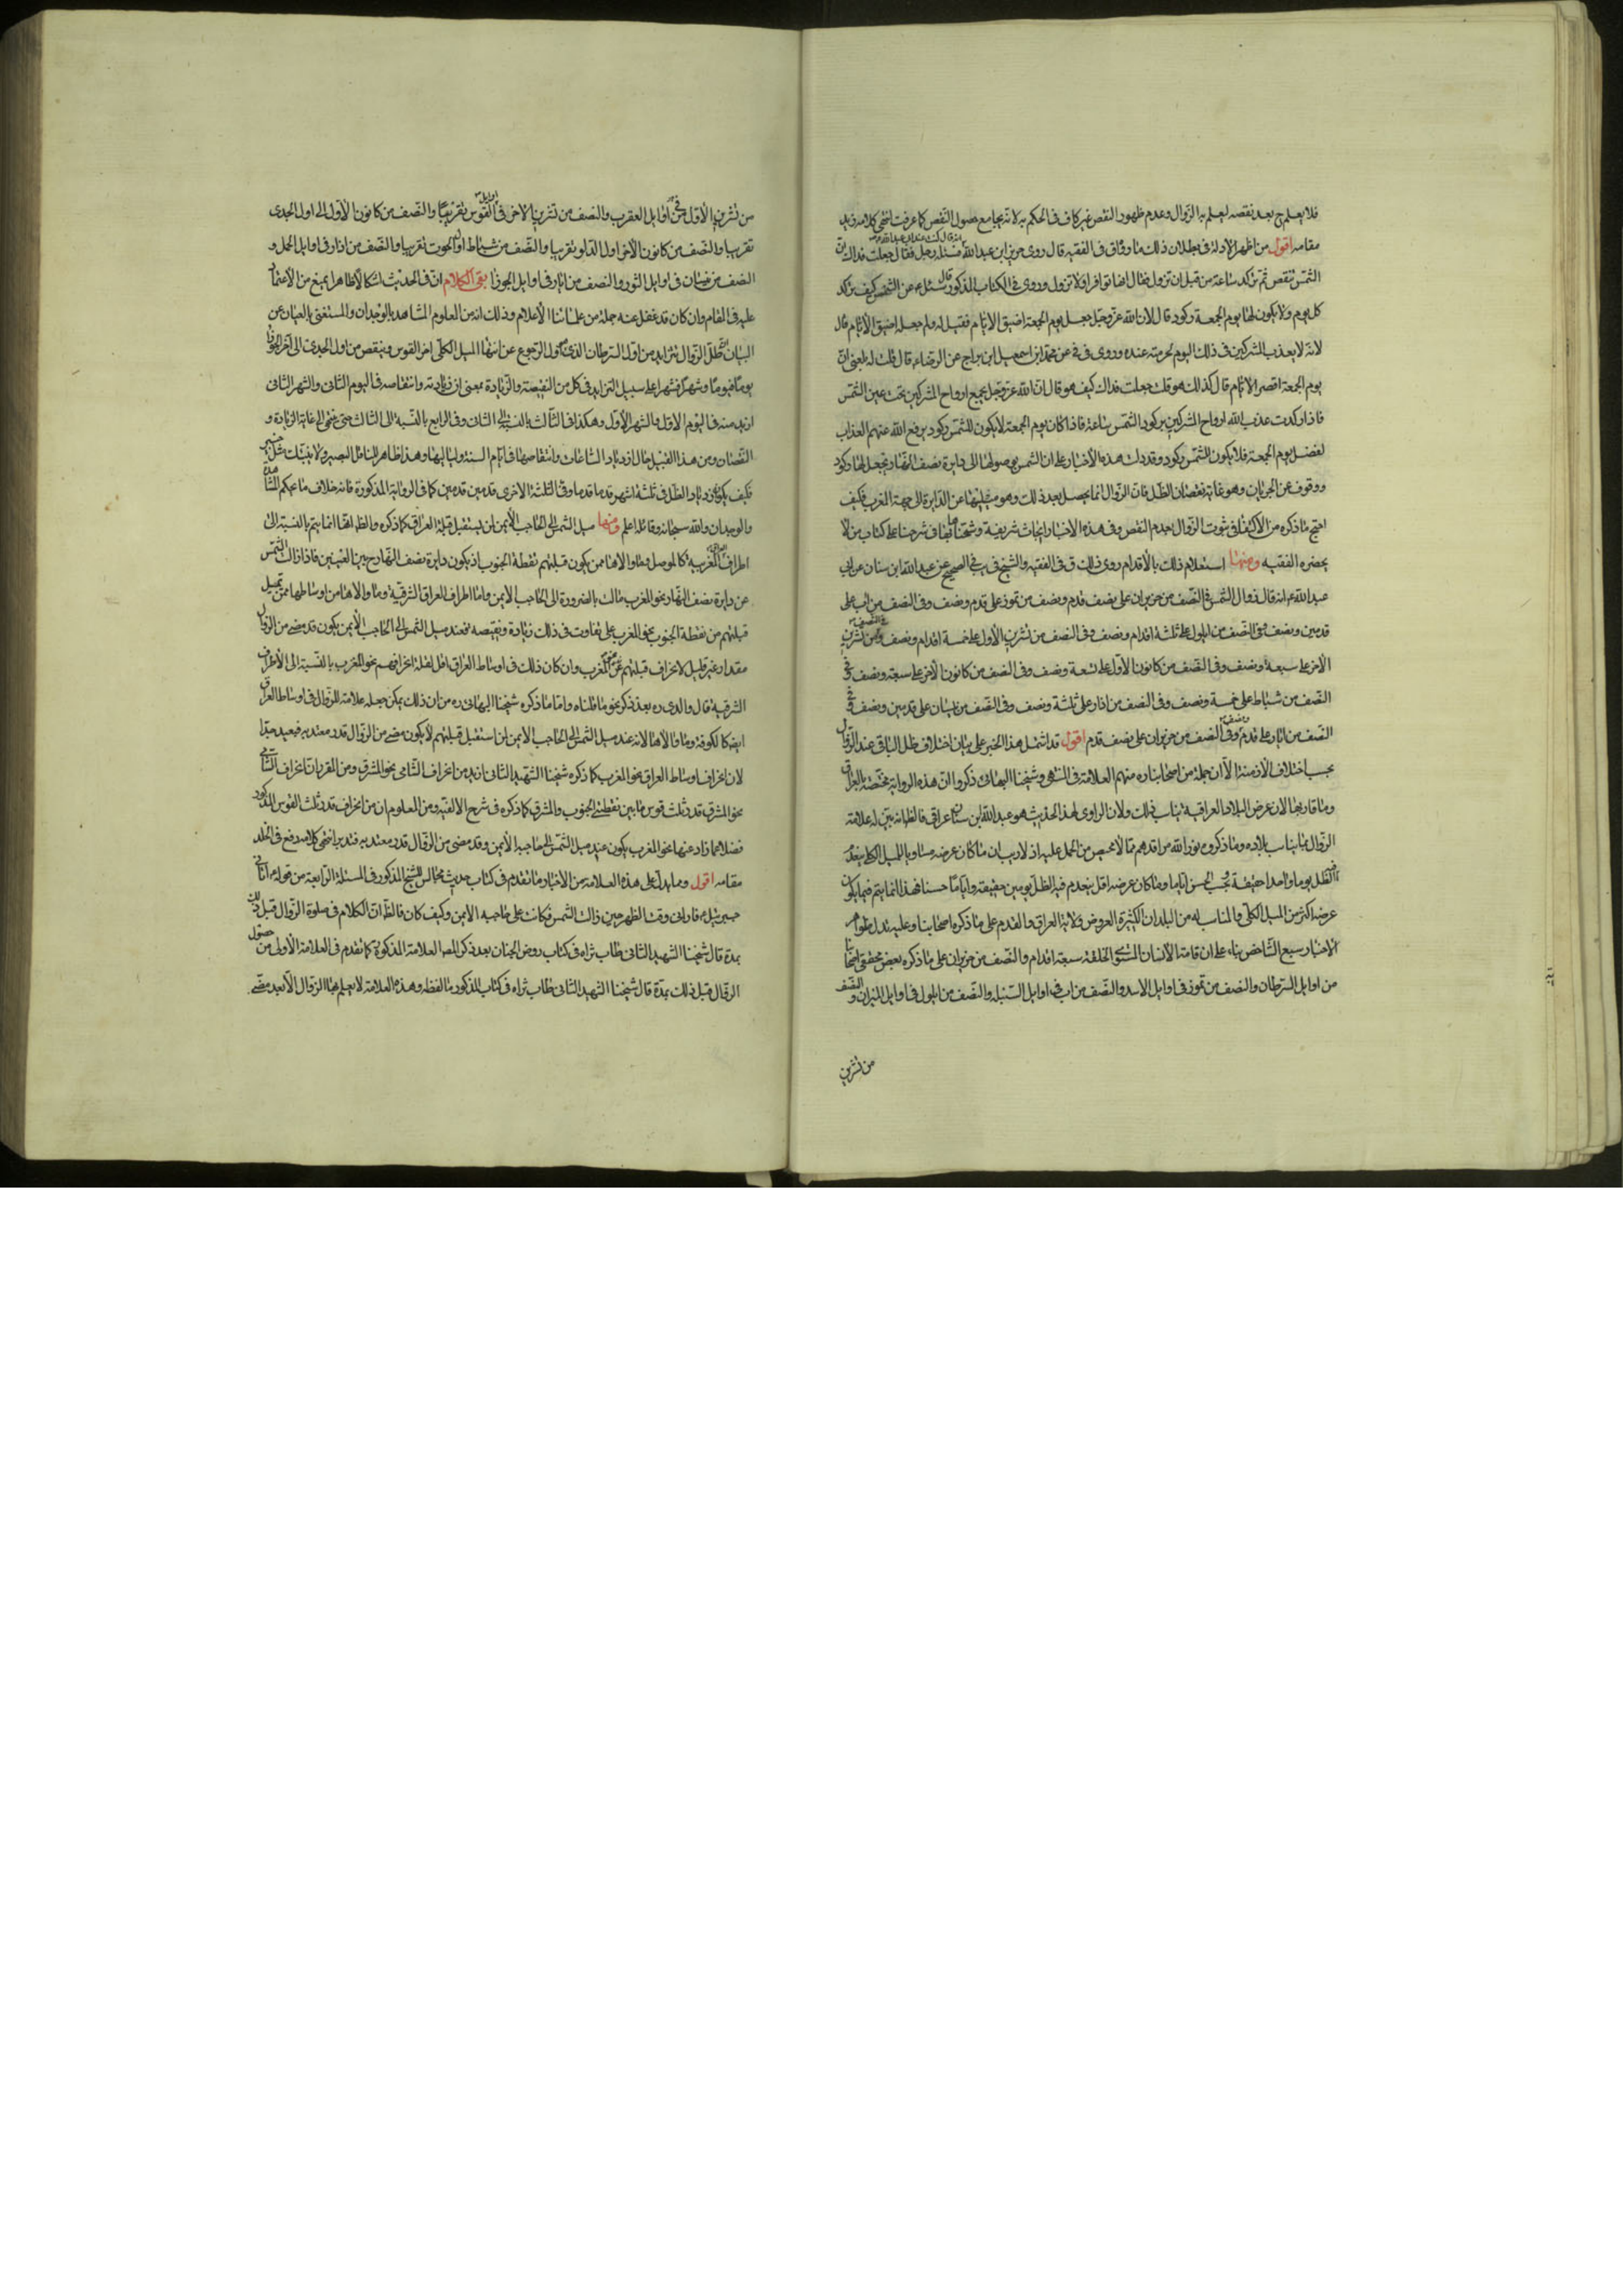 فلا يعلم ح بعد نقصه ليعلم به الزوال وعدم ظهور النقص غير كاف في الحكم به لانه يجامع حصول النقص كما عرفت انتهى كلامه زيد
مقامه اقول من اظهر الادلة في بطلان ذلك ما رواه ق في الفقيه قال روى حريز ابن عبد الله انه قال كنت عند ابي عبد الله فسئله رجل فقال جعلت فداك ان
الشمس تنقص ثم تركد ساعة من قبل ان تزول فقال انها توامر اولا تزول وروى في الكتاب المذكور قال سئل ع عن الشمس كيف تركد
كل يوم ولا يكون لها يوم الجمعة ركود قال لان الله عز وجل جعل يوم الجمعة اضيق الايام فقيل له ولم جعله اضيق الايام قال
لانه لا يعذب المشركين في ذلك اليوم لحرمته عنده وروى في في عن محمد ابن اسمعيل ابن بزيع عن الرضا ع قال قلت له بلغني ان
يوم الجمعة اقصر الايام قال كذلك هو قلت جعلت فداك كيف هو قال ان الله عز وجل يجمع ارواح المشركين تحت عين الشمس
فاذا ركدت عذب الله ارواح المشركين بركود الشمس ساعة فاذا كان يوم الجمعة لا يكون للشمس ركود يرفع الله عنهم العذاب
لفضل يوم الجمعة فلا يكون للشمس ركود وقد دلت هذه الأخبار على ان الشمس بوصولها الى دايرة نصف النهار يجعل لها ركود
ووقوف عن الجريان وهو غاية نقصان الظل فان الزوال انما يحصل بعد ذلك وهو ميلها عن الدايرة الى جهة المغرب فكيف
احتج ما ذكره من الاكتفاء في ثبوت الزوال بعدم النقص وفي هذه الاخبار ابحاث شريفة وشحنا بها في شرحنا على كتاب من لا
يحضره الفقيه ومنها استعلام ذلك بالأقدام روى ذلك ق في الفقيه والشيخ في يب في الصحيح عن عبد الله ابن سنان عن ابي
عبد الله ع انه قال زوال الشمس في النصف من حزيران على نصف قدم ونصف من تموز على قدم ونصف وفي النصف من اب على
قدمين ونصف وفي النصف من ايلول على ثلثة اقدام ونصف وفي النصف من تشرين الأول على خمسة اقدام ونصف وفي النصف من تشرين
الأخر على سبعة ونصف وفي النصف من كانون الأول على تسعة ونصف وفي النصف من كانون الأخر على سبعة ونصف وفي
النصف من شباط على خمسة ونصف وفي النصف من اذار على ثلثة ونصف وفي النصف من نيسان على قدمين ونصف وفي
النصف من ايار على قدم ونصف وفي النصف من حزيران على نصف قدم اقول قد اشتمل هذا الخبر على بيان اختلاف ظل الباقي عند الزوال
بحسب اختلاف الأزمنة الا ان جملة من اصحابنا ره منهم العلامة في المنتهى وشيخنا البهائي ذكروا ان هذه الرواية مختصة بالعراق
وما قاربها لان عرض البلاد العراقية يناسب ذلك ولان الراوي لهذا الحديث هو عبد الله ابن سنان عراقي فالظ انه بين له علامة
الزوال بما يناسب بلاده وما ذكروه نور الله مراقدهم مما لا محيص من الحمل عليه اذ لا ريب ان ما كان عرضه مساويا للميل الكلي ينعدم
فيه الظل يوما واحدا حقيقة وبحسب الحس اياما وما كان عرضه اقل ينعدم فيه الظل يومين حقيقة واياما حسا فهذا انما يتم فيما يكون
عرضه اكثر من الميل الكلي والمناسب له من البلدان الكثيرة العروض ولاية العراق والقدم على ما ذكره اصحابنا وعليه تدل ظواهر
الاخبار سبع الشاخص بناء على ان قامة الأنسان المستوى الخلقة سبعة اقدام والنصف من حزيران على ما ذكره بعض محققي اصحابنا
من اوايل السرطان والنصف من تموز في اوايل الاسد والنصف من اب في اوايل السنبلة والنصف من ايلول في اوايل الميزان والنصف
من تشرين
من تشرين الأول في اوايل العقرب والنصف من تشرين الاخر في اوايل القوس تقريبا والنصف من كانون الأول الى اول الجدى
تقريبا والنصف من كانون الأخر اول الدلو تقريبا والنصف من شباط اول الحوت تقريبا والنصف من اذار في اوايل الحمل و
النصف من نيسان في اوايل الثور والنصف من ايار في اوايل الجوزا بقى الكلام ان في الحديث اشكالا ظاهرا يمنع من الأعتماد
عليه في المقام وان كان قد غفل عنه جملة من علمائنا الأعلام وذلك انه من العلوم المشاهد بالوجدان والمستغنى بالعيان عن
البيان ان ظل الزوال يتزايد من اول السرطان الذي هو اول الرجوع عن انتهاء الميل الكلي الى اخر القوس وينقص من اول الجدى الى اخر الجوزا
يوما فيوما وشهرا فشهرا على سبيل التزايد في كل من النقيصة والزيادة بمعنى ان زيادته وانتقاصه في اليوم الثاني والشهر الثاني
ازيد منه في اليوم الاول والشهر الأول وهكذا في الثالث بالنسبة الى الثاني وفي الرابع بالنسبة الى الثالث حتى ينتهى الى غاية الزيادة و
النقصان ومن هذا القبيل حال ازدياد الساعات وانتقاصها في ايام السنة ولياليها وهذا ظاهر للناظر البصير ولا ينبئك مثل خبير
فكيف يكون زيادة الظل في ثلثة اشهر قدما قدما وفي الثلثة الاخرى قدمين قدمين كما في الرواية المذكورة فانه خلاف ما يحكم به
والوجدان والله سبحانه وقائله اعلم ومنها ميل الشمس الى الحاجب الأيمن لمن يستقبل قبلة العراق كما ذكره والظ ان هذا انما يتم بالنسبة الى
اطراف العراق الغربية كالموصل وما والاها ممن يكون قبلتهم نقطة الجنوب اذ يكون دايرة نصف النهار ح بين العينين فاذا زالت الشمس
عن دايرة نصف النهار نحو المغرب مالت بالضرورة الى الحاجب الأيمن واما اطراف العراق الشرقية وما والاها من اوساطها ممن تميل
قبلتهم من نقطة الجنوب نحو المغرب على تفاوت في ذلك زيادة ونقيصة فعند ميل الشمس الى الحاجب الأيمن يكون قد مضى من الزوال
مقدار غير قليل لانحراف قبلتهم نحو المغرب وان كان ذلك في اوساط العراق اقل لقلة انحرافهم نحو المغرب بالنسبة الى الأطراف
الشرقية قال والدى ره بعد ذكر نحو ما قلناه واما ما ذكره شيخنا البهائي ره من ان ذلك يمكن جعله علامة للزوال في اوساط العراق
ايضا كالكوفة وما والاها لانه عند ميل الشمس الى الحاجب الأيمن لمن استقبل قبلتهم لا يكون مضى من الزوال قدر معتد به فبعيد جدا
لان انحراف اوساط العراق نحو المغرب كما ذكره شيخنا الشهيد الثاني ازيد من انحراف الشامي نحو المشرق ومن المقرر ان انحراف الشامي
نحو المشرق بقدر ثلث قوس ما بين نقطتي الجنوب والمشرق كما ذكره في شرح الالفية ومن المعلوم ان من انحراف قدر ثلث القوس المذكور
فضلا عما زاد عنها نحو المغرب يكون عند ميل الشمس الى حاجبه الأيمن وقد مضى من الزوال قدر معتد به فتدبر انتهى كلامه رفع في الخلد
مقامه اقول ومما يدل على هذه العلامة من الأخبار ما تقدم في كتاب حديث مجالس الشيخ المذكور في المسئلة الرابعة من قوله ع اتاني
جبرئيل ع فاراني وقت الظهر حين زالت الشمس فكانت على حاجبه الايمن وكيف كان فالظ ان الكلام في صلوة الزوال قبل ذلك
بمدة قال شيخنا الشهيد الثاني طاب ثراه في كتاب روض الجنان بعد ذكر المصا العلامة المذكورة كما تقدم في العلامة الأولى من حصول
الزوال قبل ذلك بمدة قال شيخنا الشهيد الثاني طاب ثراه في كتاب المذكور ما لفظه وهذه العلامة لا يعلم بها الزوال الا بعد مضى